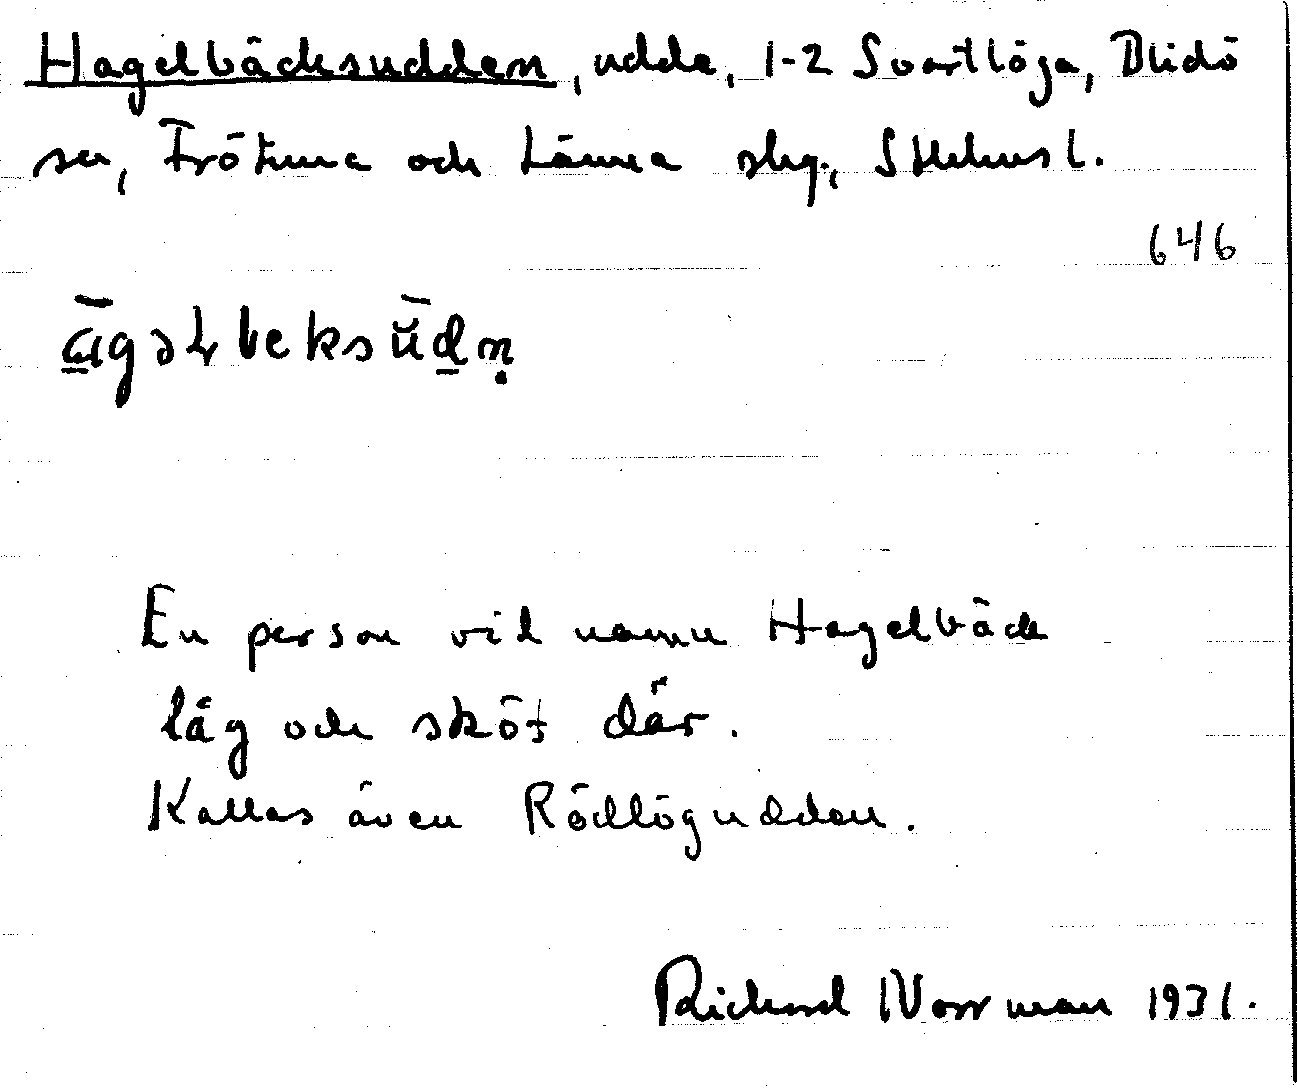 Hagelbäcksudden, udde, 1-2 Svartlöga, Blidö
sn, Frötuna och Länna skg., Sthlms l.
646
a̲̅gəlbeksŭ̄d̲ṇ
En person vid namn Hagelbäck
låg och sköt där.
Kallas även Rödlögudden.
Rickard Norrman 1931.